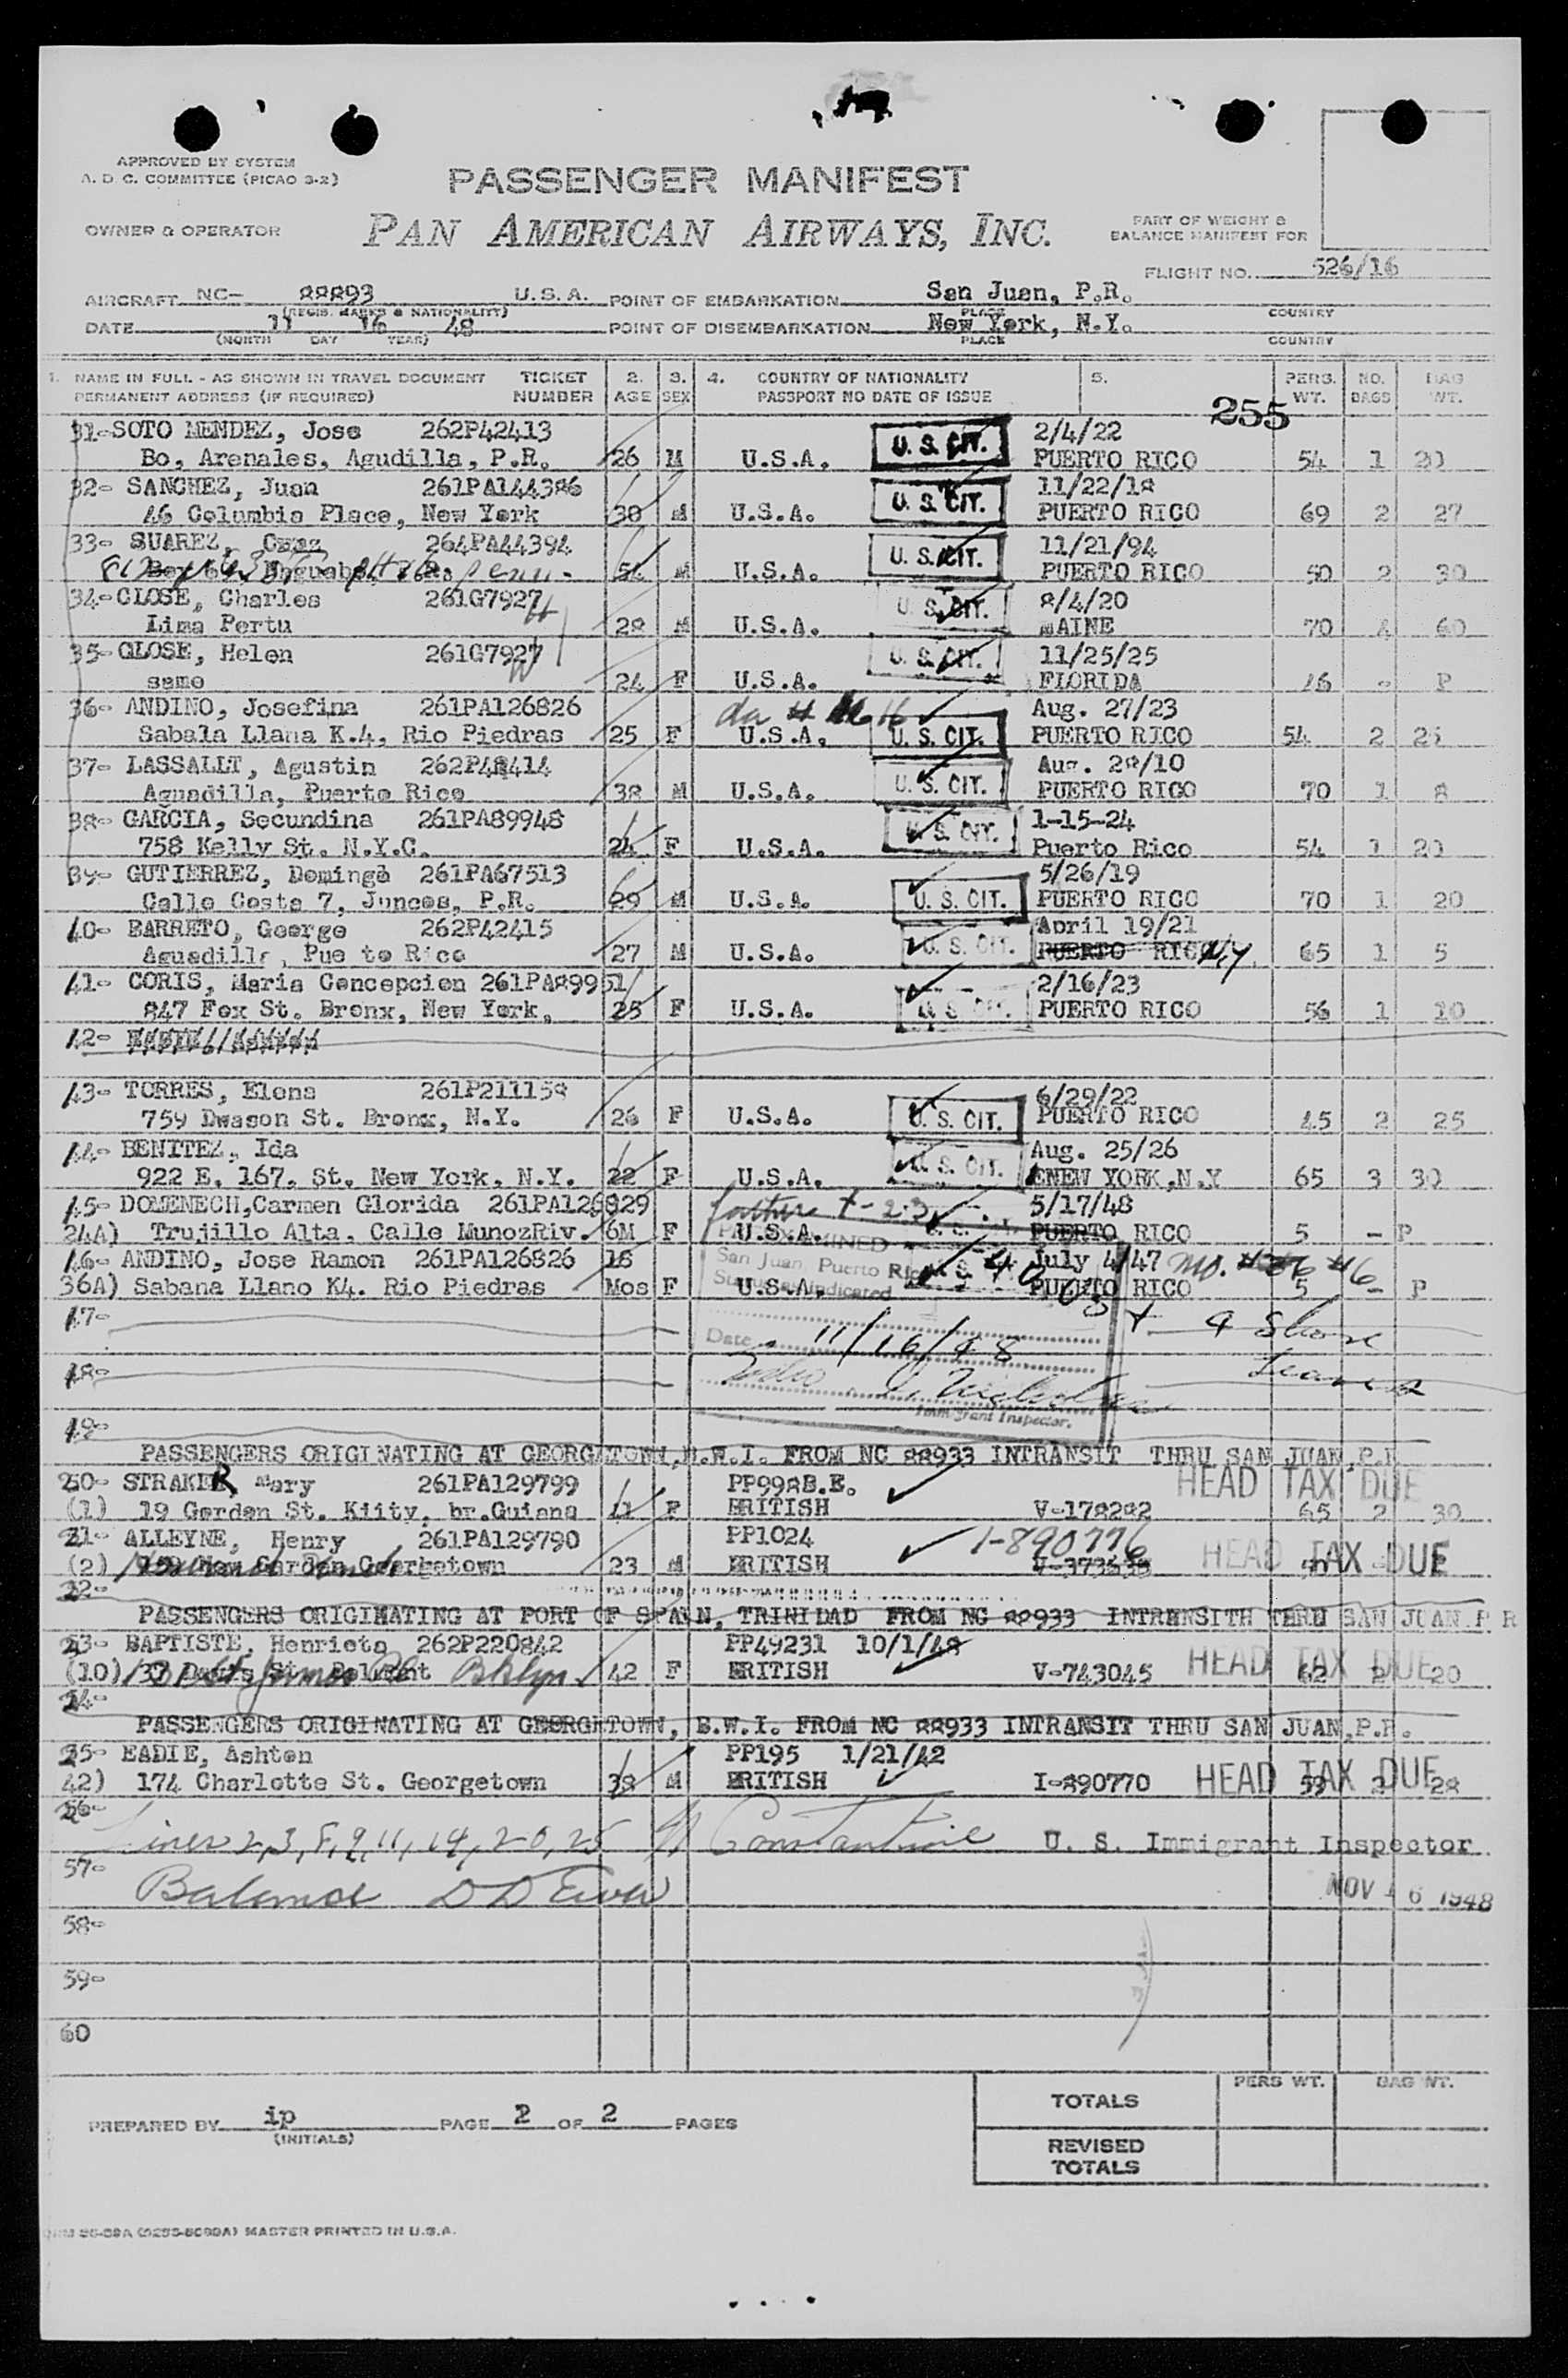 APPROVED BY SYSTEM
A. D. C. COMMITTEE (PICAO 3-2)
PASSENGER MANIFEST
OWNER & OPERATOR
PAN AMERICAN AIRWAYS, INC.
PART OF WEIGHT &
BALANCE MANIFEST FOR
FLIGHT NO. 526/16
AIRCRAFT NC- 88893 U.S.A. POINT OF EMBARKATION San Juan, P.R.
(REGIS. MARKS & NATIONALITY) PLACE COUNTRY
DATE 11 16 48 POINT OF DISEMBARKATION New York, N.Y.
(MONTH DAY YEAR) PLACE COUNTRY
1. NAME IN FULL - AS SHOWN IN TRAVEL DOCUMENT TICKET 2. 3. 4. COUNTRY OF NATIONALITY 5. PERS. NO. BAG
PERMANENT ADDRESS (IF REQUIRED) NUMBER AGE SEX PASSPORT NO DATE OF ISSUE WT. BAGS WT.
255
31-SOTO MENDEZ, Jose 262P42413 U.S. CIT. 2/4/22
Bo, Arenales, Agudilla, P.R. 26 M U.S.A. PUERTO RICO 54 1 20
32- SANCHEZ, Juan 261PA144386 U.S. CIT. 11/22/18
46 Columbia Place, New York 30 M U.S.A. PUERTO RICO 69 2 27
33- SUAREZ, Cruz 264PA44394 U.S. CIT. 11/21/94
54 M U.S.A. PUERTO RICO 50 2 30
34-CLOSE, Charles 261G7927 U.S. CIT. 8/4/20
Lima Pertu 28 M U.S.A. MAINE 70 4 60
35-CLOSE, Helen 261G7927 U.S. CIT. 11/25/25
same 24 F U.S.A. FLORIDA 46 - P
36- ANDINO, Josefina 261PA126826 Aug. 27/23
Sabala Llana K.4, Rio Piedras 25 F U.S.A. U.S. CIT. PUERTO RICO 54 2 25
37- LASSALLT, Agustin 262P42414 Aug. 28/10
Aguadilla, Puerto Rico 38 M U.S.A. U.S. CIT. PUERTO RICO 70 1 8
38- GARCIA, Secundina 261PA89948 U.S. CIT. 1-15-24
758 Kelly St. N.Y.C. 24 F U.S.A. Puerto Rico 54 1 20
39- GUTIERREZ, Domingo 261PA67513 5/26/19
Calle Coste 7, Juncos, P.R. 29 M U.S.A. U.S. CIT. PUERTO RICO 70 1 20
40- BARRETO, George 262P42415 April 19/21
Aguadilla, Pue to Rico 27 M U.S.A. U.S. CIT. PUERTO RICO N.Y. 65 1 5
41- CORIS, Maria Concepcion 261PA89951 2/16/23
847 Fox St. Bronx, New York, 25 F U.S.A. U.S. CIT. PUERTO RICO 56 1 10
42-
43- TORRES, Elena 261P211158 6/29/22
759 Dwason St. Bronx, N.Y. 26 F U.S.A. U.S. CIT. PUERTO RICO 45 2 25
44- BENITEZ, Ida Aug. 25/26
922 E. 167. St. New York, N.Y. 22 F U.S.A. U.S. CIT. NEW YORK,N.Y 65 3 30
45- DOMENECH,Carmen Glorida 261PA126829 5/17/48
24A) Trujillo Alta. Calle MunozRiv. 6M F U.S.A. PUERTO RICO 5 - P
46- ANDINO, Jose Ramon 261PA126826 16 July 4/47
36A) Sabana Llano K4. Rio Piedras Mos F U.S.A. PUERTO RICO 5 - P
EXAMINED
San Juan, Puerto Rico
Status as indicated
Date 11/16/48
Immigrant Inspector.
47-
48-
49-
PASSENGERS ORIGINATING AT GEORGETOWN,B.W.I. FROM NC 88933 INTRANSIT THRU SAN JUAN,P.R
50- STRAKER Mary 261PA129799 PP998B.E. HEAD TAX DUE
(1) 19 Garden St. Kiity, br.Guiana 41 F BRITISH V-178282 65 2 30
51- ALLEYNE, Henry 261PA129790 PP1024 I-890776
(2) Georgetown 23 M BRITISH HEAD TAX DUE
52-
PASSENGERS ORIGINATING AT PORT OF SPAIN, TRINIDAD FROM NC 88933 INTRENSITH THRU SAN JUAN P R
53- BAPTISTE, Henrieta 262P220842 PP49231 10/1/48 HEAD TAX DUE
(10) Bklyn 42 F BRITISH V-743045 62 2 20
54-
PASSENGERS ORIGINATING AT GEORGETOWN, B.W.I. FROM NC 88933 INTRANSIT THRU SAN JUAN,P.R.
55- EADIE, Ashton PP195 1/21/42
42) 174 Charlotte St. Georgetown 38 M BRITISH I-890770 HEAD TAX DUE 59 2 28
56-
Lines 2,3,8,9,11,14,20,25 Constantine U. S. Immigrant Inspector
57- Balance
NOV 16 1948
58-
59-
60
TOTALS PERS WT. BAG WT.
PREPARED BY ip PAGE 2 OF 2 PAGES
(INITIALS)
REVISED
TOTALS
MASTER PRINTED IN U.S.A.